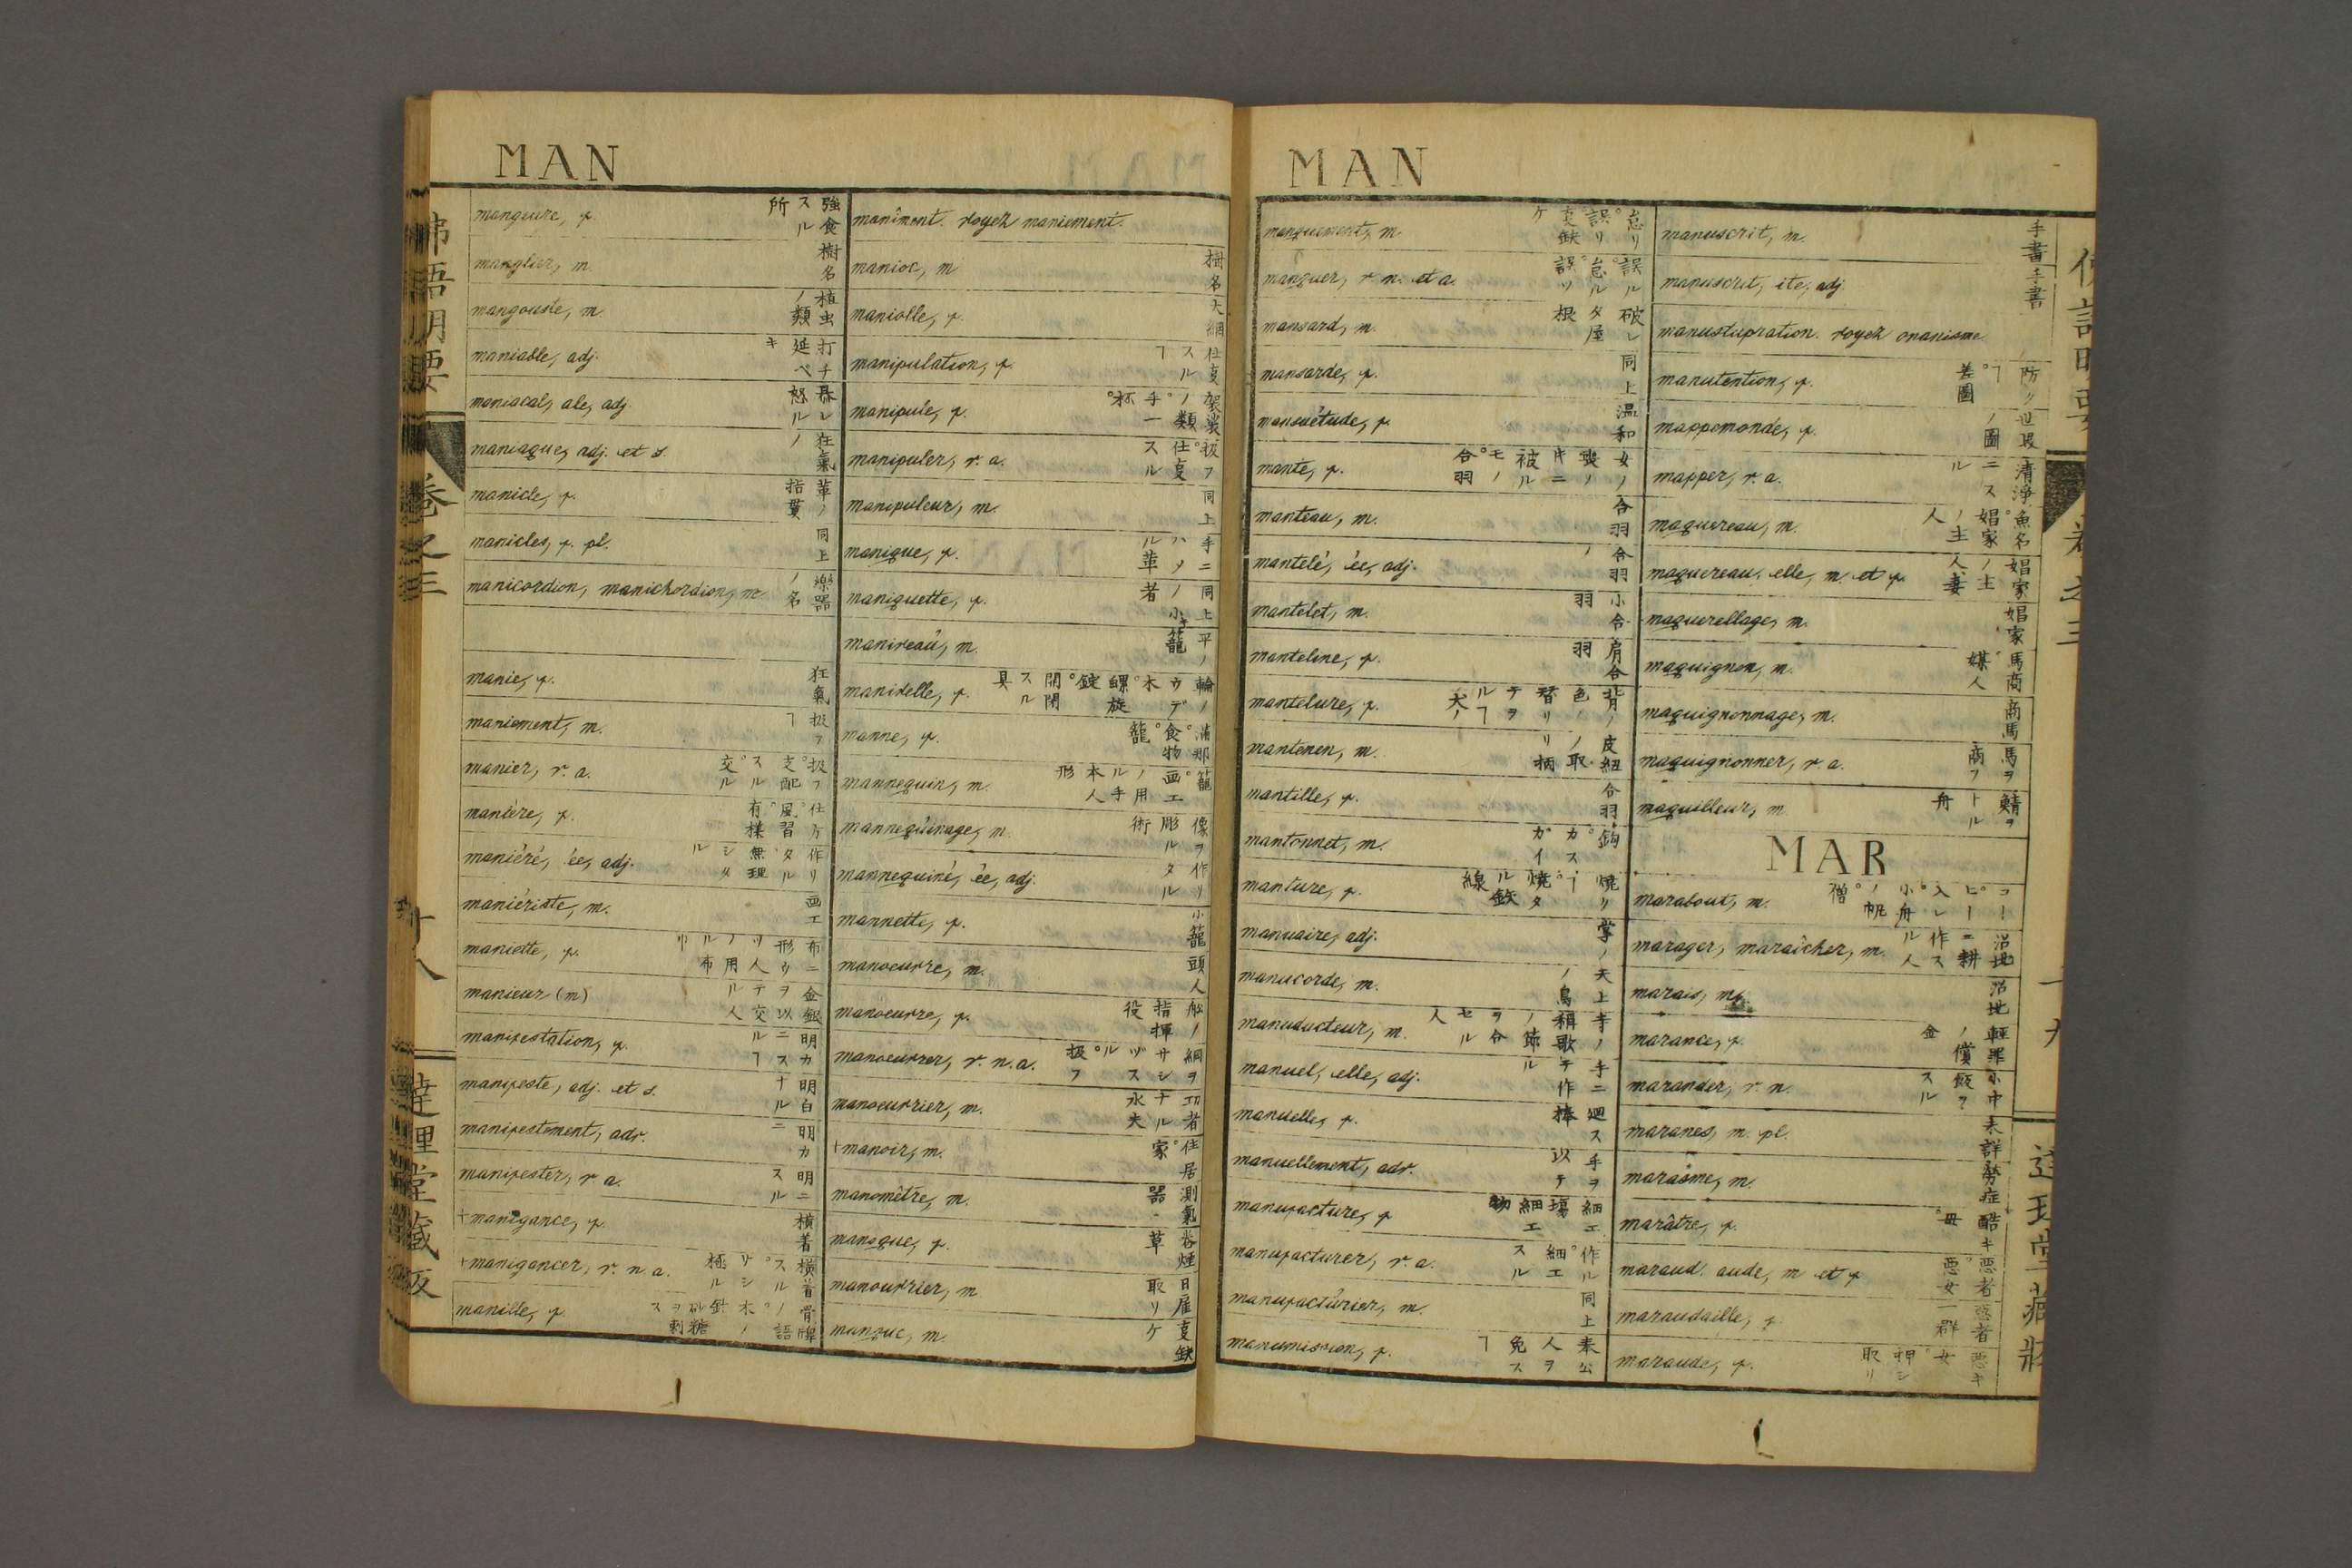 MAN
mangeure, f. 強食スル所
manglier, m. 樹名
mangouste, m. 植虫ノ類
maniable, adj. 打チ延ベキ
maniacal, ale, adj. 暴レ怒ル
maniaque, adj. et s. 狂氣ノ
manicle, f. 革ノ指貫
manicles, f. pl. 同上
manicordion, manichordion, m. 樂器ノ名
manie, f. 狂氣
maniement, m. 扱フヿ
manier, v. a. 扱フ。支配スル。交ル
manière, f. 仕方。風習。有樣
maniéré, ée, adj. 作リタル。無理シタル
maniériste, m. 画工
maniette, f.
manieur (m) 金銀ヲ以テ交ル人
manifestation, f. 明カニスルヿ
manifeste, adj. et s. 明白ナル
manifestement, adv. 明カニ
manifester, v. a. 明ニスル
+manigance, f. 横着
+manigancer, v. n. a.
manille, f.
maniment. voyez maniement.
manioc, m 樹名
maniolle, f. 大網
manipulation, f. 仕叓スルヿ
manipule, f. 袈裟ノ類。一手杯。
manipuler, v. a. 扱フ。仕叓スル
manipuleur, m. 同上
manique, f. 手ニハルノ革
maniguette, f.
maniveau, m. 平ノ籠
manivelle, f.
manne, f. 満那。食物。籠
mannequin, m. 籠。画工ノ用ル手本人形
mannequinage, m. 像ヲ彫ル術
mannequiné, ée, adj. 作リタル
mannette, f. 小籠
manoeuvre, m. 頭人
manoeuvre, f. 舩ノ指揮役
manoeuvrer, v. n. a.
manoeuvrier, m. 功者ナル水夫
+manoir, m. 住居。家
manomètre, m. 測氣器
manoque, f. 卷煙草
manouvrier, m 日雇取リ
manque, m. 叓欠ケ
MAN
manquement, m. 怠リ。誤リ。叓缺ケ
manquer, v. n. et a. 誤ル。怠ル。誤リ
mansard, m. 破レタ屋根
mansarde, f. 同上
mansuétude, f. 温和
mante, f.
manteau, m. 合羽
mantelé, ée, adj. 合羽ノ
mantelet, m. 小合羽
manteline, f. 肩合羽
mantelure, f.
mantenen, m.
mantille, f. 合羽
mantonnet, m. 鈎。カスガイ
manture, f.
manuaire, adj. 掌ノ
manucorde, m. 天上ノ鳥
manuducteur, m.
manuel, elle, adj. 手ニテ作ル
manuelle, f. 廻ス棒
manuellement, adv. 手ヲ以テ
manufacture, f 細工場。細工物
manufacturer, v. a. 作ル。細工スル
manufacturier, m. 同上
manumission, f. 奉公人ヲ免スヿ
manuscrit, m. 手書
manuscrit, ite, adj. 手書
manustupration. voyez onanisme
manutention, f. 防クヿ。差圖
mappemonde, f. 世界ノ圖
mapper, v. a. 清浄ニスル
maquereau, m. 魚名。娼家ノ主人
maquereau, elle, m. et f. 娼家ノ主人妻
maquerellage, m. 娼家
maquignon, m. 馬商。媒人
maquignonnage, m. 商馬
maquignonner, v. a. 馬ヲ商フ
maquilleur, m 鯖ヲトル舟
MAR
marabout, m.
marager, maraîcher, m. 沼地ニ耕作スル人
marais, m. 沼地
marance, f. 輕罪ノ償金
marander, v. n.
maranes, m. pl. 未詳
marasme, m. 労症
marâtre, f. 酷キ母。
maraud, aude, m et f 悪者。悪女
maraudaille, f 悪者一群
maraude, f. 悪キ女。押シ取リ
佛語明要
卷之三
十八
達理堂藏版